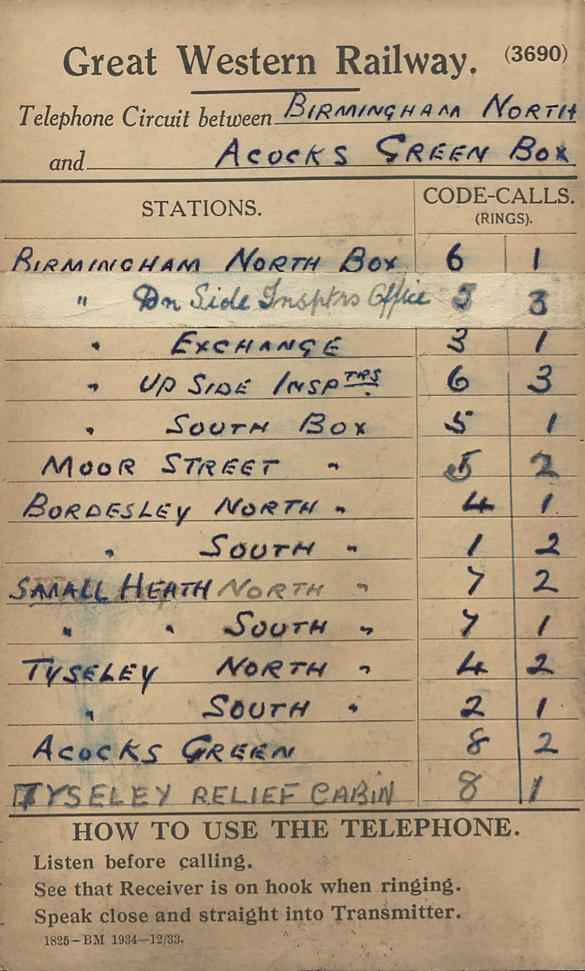 Great Western Railway. (3690)
Telephone Circuit between BIRMINGHAM NORTH
and ACOCKS GREEN BOX
STATIONS. CODE-CALLS.
(RINGS).
BIRMINGHAM NORTH BOX 6 1
" Dn Side Insptrs Office 5 3
" EXCHANGE 3 1
" UP SIDE INSPTRS 6 3
" SOUTH BOX 5 1
MOOR STREET " 5 2
BORDESLEY NORTH " 4 1
" SOUTH " 1 2
SMALL HEATH NORTH " 7 2
" " SOUTH " 7 1
TYSELEY NORTH " 4 2
" SOUTH " 2 1
ACOCKS GREEN 8 2
TYSELEY RELIEF CABIN 8 1
HOW TO USE THE TELEPHONE.
Listen before calling.
See that Receiver is on hook when ringing.
Speak close and straight into Transmitter.
1825-BM 1934-12/33.